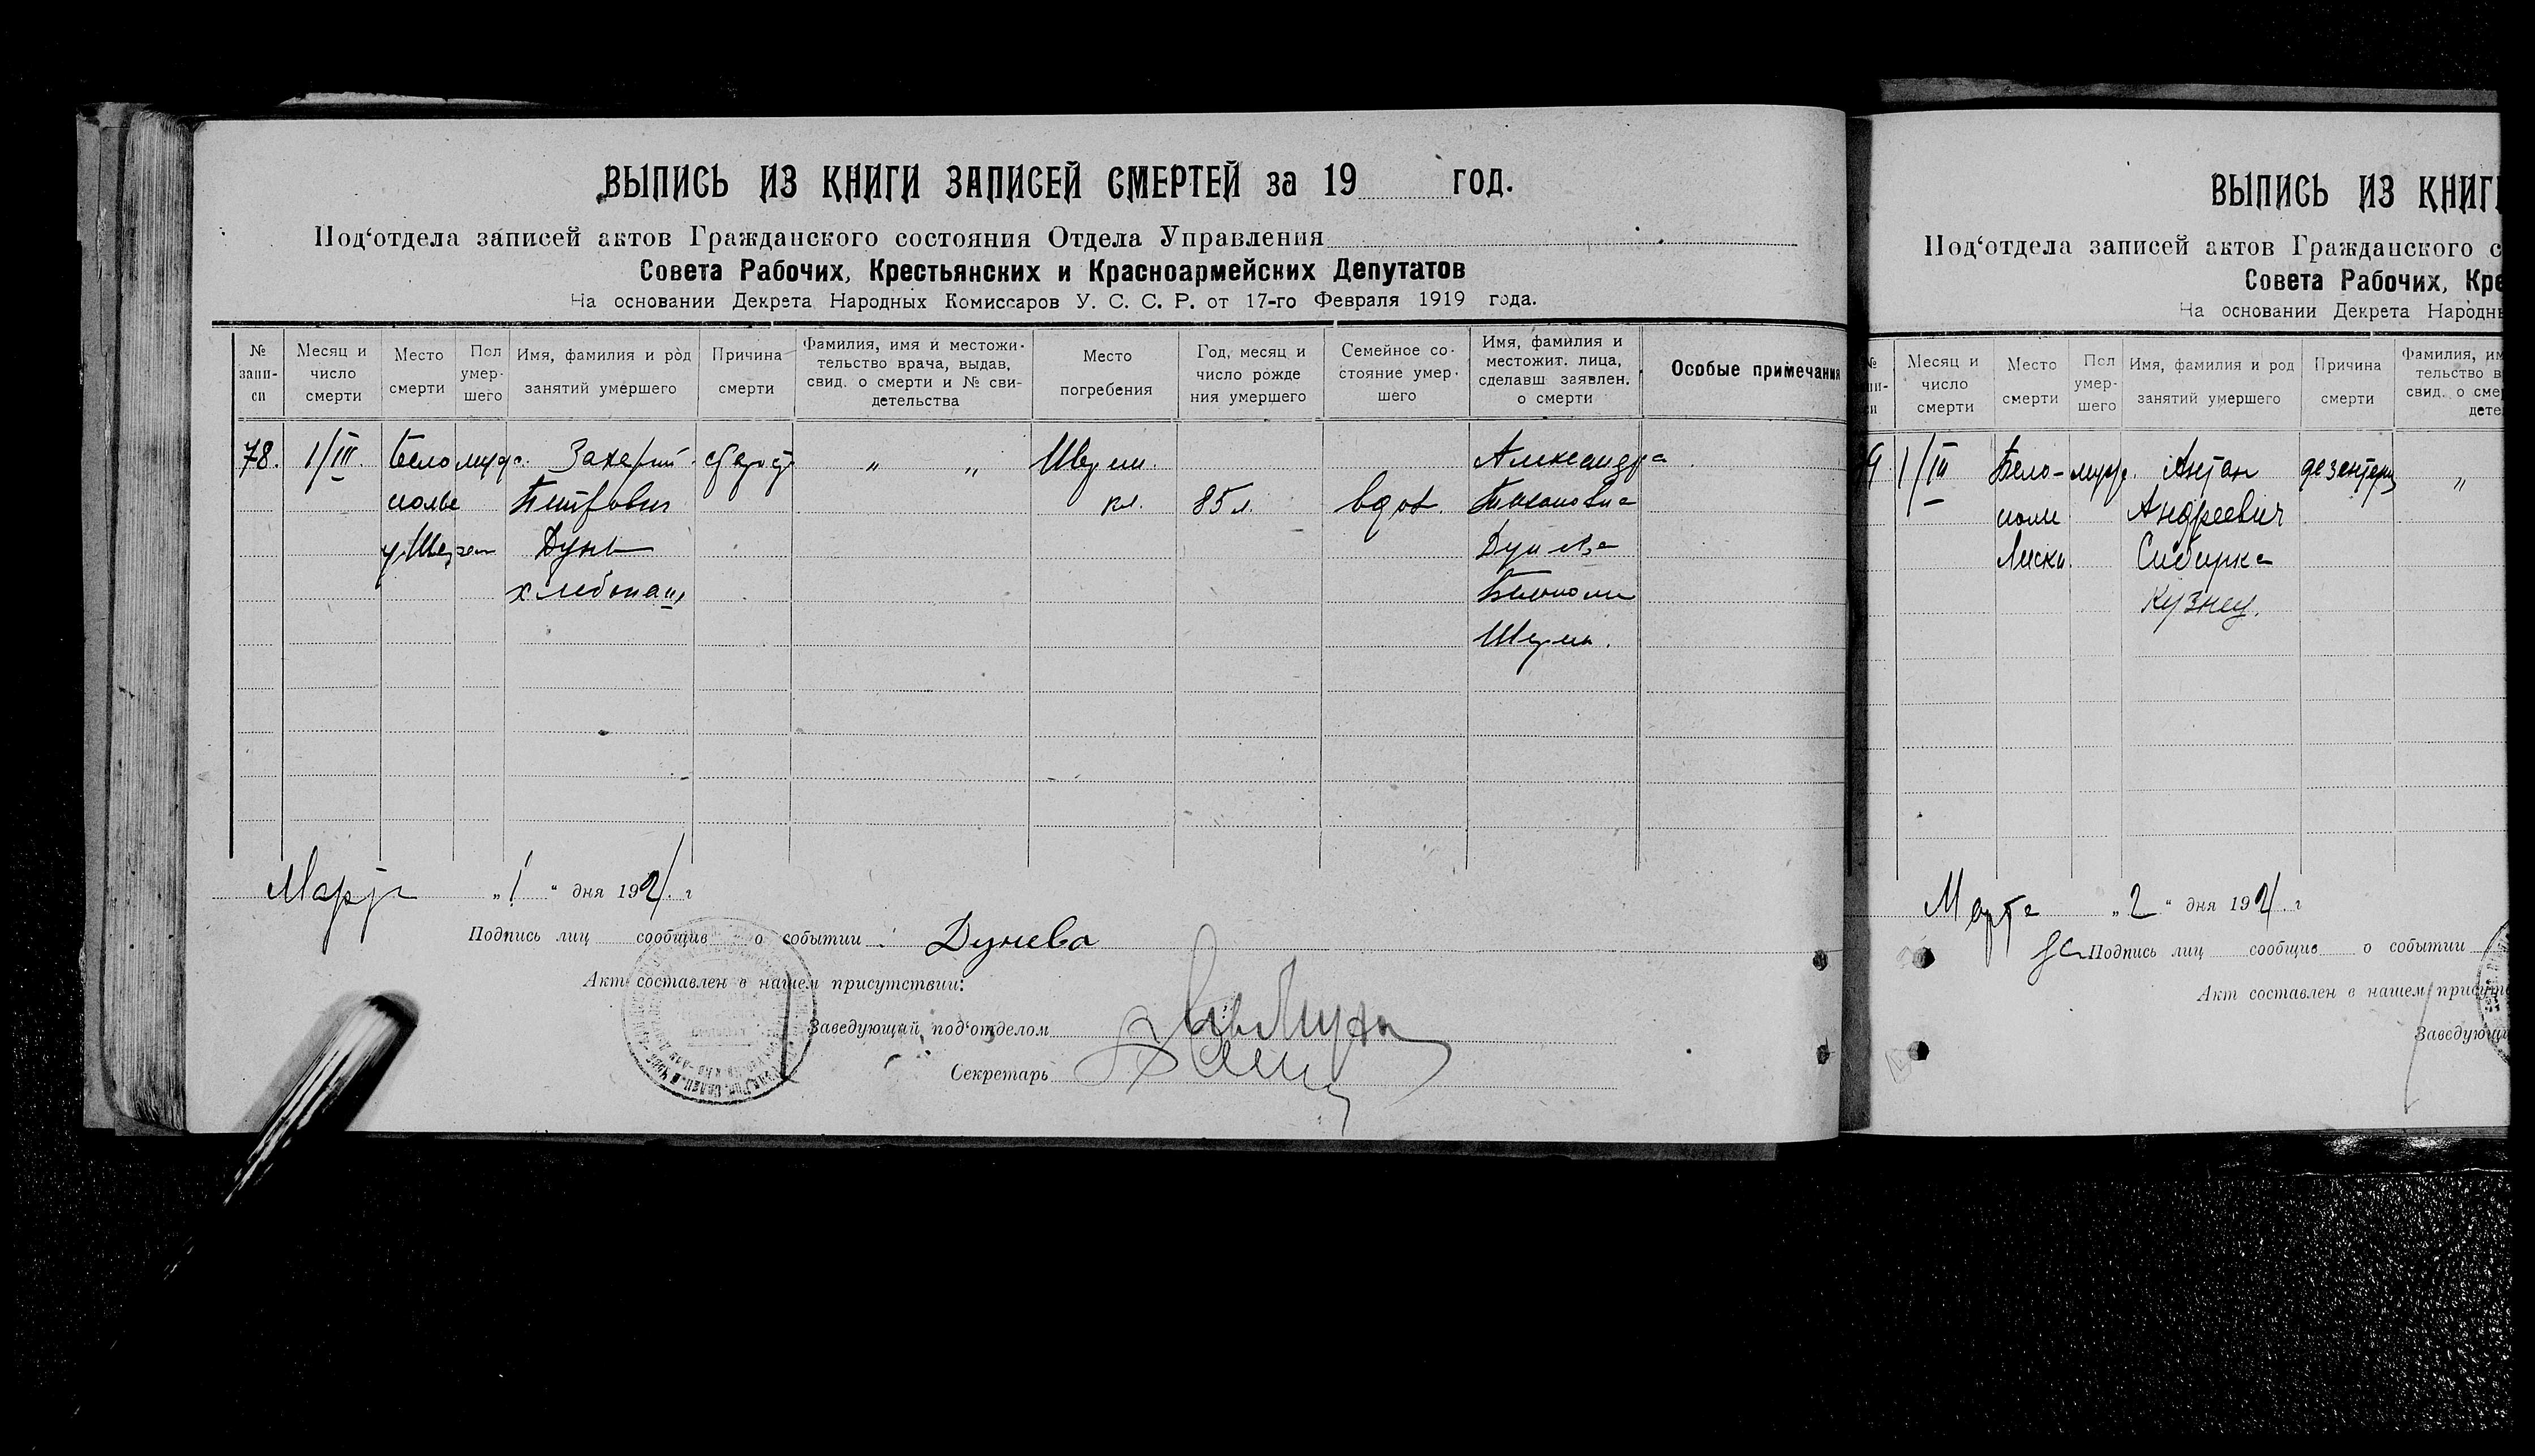 ВЫПИСЬ ИЗ КНИГИ ЗАПИСЕЙ СМЕРТЕЙ за 19 год.
Под‘отдела записей актов Гражданского состояния Отдела Управления
Совета Рабочих, Крестьянских и Красноармейских Депутатов
На основании Декрета Народных Комиссаров У. С. С. Р. от 17-го Февраля 1919 года.
№ запи-си
Месяц и число смерти
Место смерти
Пол умер-шего
Имя, фамилия и род занятий умершего
Причина смерти
Фамилия, имя и местожи-тельство врача, выдав, свид. о смерти и № сви-детельства
Место погребения
Год, месяц и число рожде ния умершего
Семейное со-стояние умер-шего
Имя, фамилия и местожит. лица, сделавш заявлен. о смерти
Особые примечания
78. 1/III. Бело муж. Захарий „ „ Александра
полье Петрович кл. 85 л. вдов.
Дунь Дунева
хлебопаш
Марта „1“ дня 1921 г
Подпись лиц сообщив о событии: Дунева
Акт составлен в нашем присутствии:
Заведующий под‘отделом
Секретарь
ВЫПИСЬ ИЗ КНИГИ
Под‘отдела записей актов Гражданского с
Совета Рабочих, Кре
На основании Декрета Народн
Месяц и число смерти
Место смерти
Пол умер-шего
Имя, фамилия и род занятий умершего
Причина смерти
Фамилия, им
тельство в
свид. о смер
дете
9 1/III Бело- муж. Антон дезентер „
Андреевич
Лиски Сибирка
Кузнец.
Марта „2“ дня 1921 г
Подпись лиц сообщив о событии
Акт составлен в нашем присутс
Заведующи